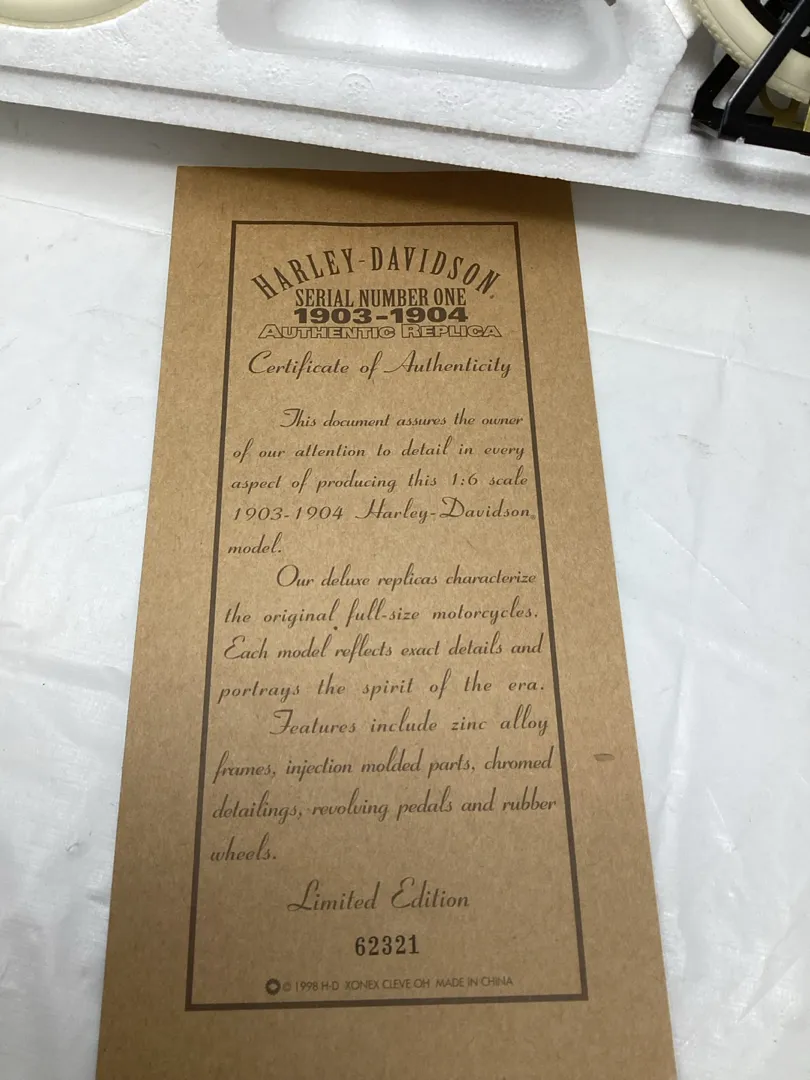 HARLEY-DAVIDSON
SERIAL NUMBER ONE
1903-1904
AUTHENTIC REPLICA
Certificate of Authenticity
This document assures the owner
of our attention to detail in every
aspect of producing this 1:6 scale
1903-1904 Harley-Davidson®
model.
Our deluxe replicas characterize
the original full-size motorcycles.
Each model reflects exact details and
portrays the spirit of the era.
Features include zinc alloy
frames, injection molded parts, chromed
detailings, revolving pedals and rubber
wheels.
Limited Edition
62321
© 1998 H-D XONEX CLEVE OH MADE IN CHINA